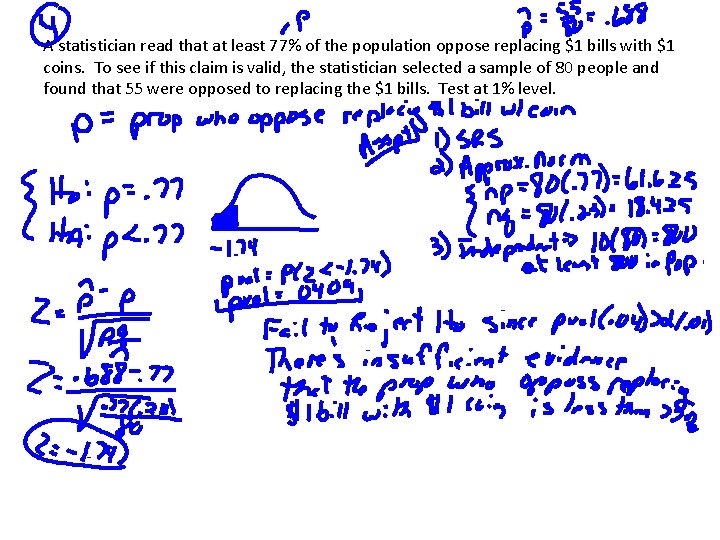 4
, p
p̂ = 55/80 = .688
A statistician read that at least 77% of the population oppose replacing $1 bills with $1
coins. To see if this claim is valid, the statistician selected a sample of 80 people and
found that 55 were opposed to replacing the $1 bills. Test at 1% level.
p = prop who oppose replacing $1 bill w/ coin
1) SRS
2) Approx. Norm
H₀: p = .77
np = 80(.77) = 61.6 ≥5
Ha: p < .77
nq = 80(.23) = 18.4 ≥5
3) Independent ⇒ 10(80) = 800
at least 800 in pop.
-1.74
pval = P(Z < -1.74)
pval = .0409
Z = p̂ - p / √pq/n
Fail to Reject Ho since pval(.04) > α(.01)
Z = .688 - .77 / √.77(.23)/80
There is insufficient evidence
that the prop who oppose replacing
$1 bill with $1 coin is less than
Z = -1.74